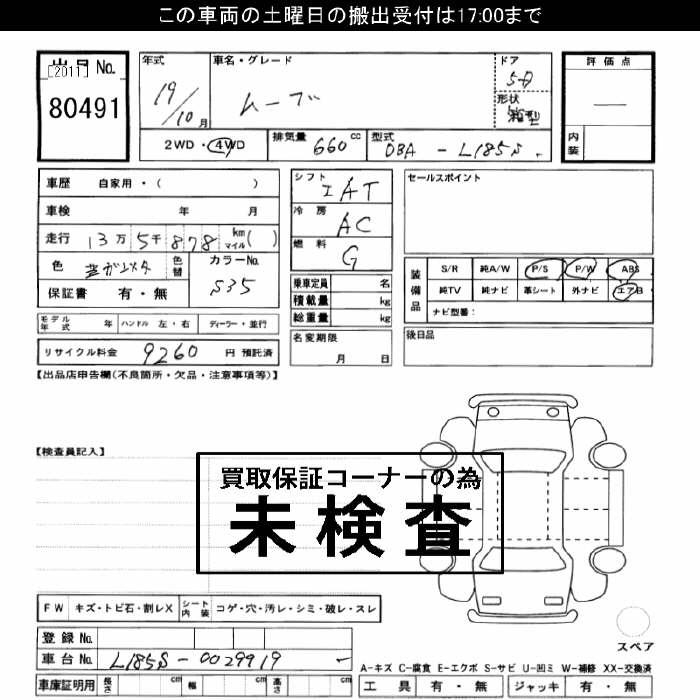 この車両の土曜日の搬出受付は17:00まで
出品 No.
[2011]
80491
年式
19/10月
車名・グレード
ムーブ
ドア
5D
形状
箱型
評価点
内装
2WD・4WD
排気量 660 cc
型式 DBA - L185S
車歴 自家用・( )
車検 年 月
走行 13万 5千 878 km マイル ( )
色
色替
カラーNo.
S35
保証書 有・無
シフト
IAT
冷房
AC
燃料
G
乗車定員 名
積載量 kg
総重量 kg
名変期限
月 日
セールスポイント
装備品
S/R 純A/W P/S P/W ABS
純TV 純ナビ 革シート 外ナビ エアB
ナビ型番:
後日品
モデル年式 年 ハンドル 左・右 ディーラー・並行
リサイクル料金 9260 円 預託済
【出品店申告欄(不良箇所・欠品・注意事項等)】
【検査員記入】
買取保証コーナーの為
未検査
FW キズ・トビ石・割レX シート内装 コゲ・穴・汚レ・シミ・破レ・スレ
登録 No.
車台 No. L185S-0029919
車庫証明用 長さ cm 幅 cm 高さ cm
スペア
A-キズ C-腐食 E-エクボ S-サビ U-凹ミ W-補修 XX-交換済
工具 有・無 ジャッキ 有・無